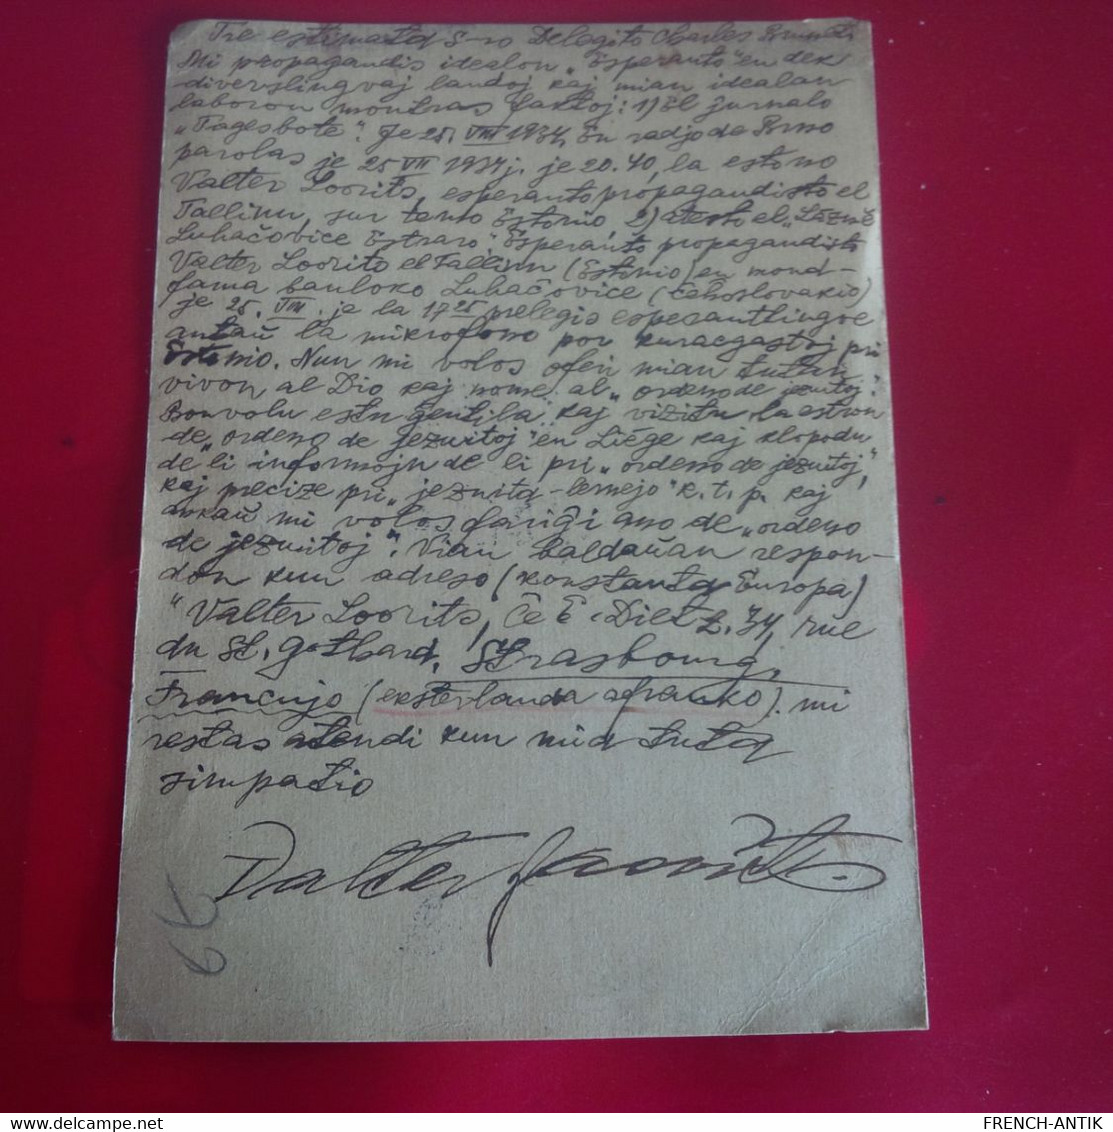 Tre estimata S-ro Delegito Charles
Mi propagandis idealon „Esperanto" en dek
diverslingvaj landoj kaj mian idealan
laboron montras faktoj: 1) El ĵurnalo
„Tagesbote". Je 25. VIII 1934, En radjo de Brno
parolas je 25 VIII 1934 j. je 20.40, la estono
Valter Loorits, esperanto propagandisto el
Tallinn, sur temo Estonio, 2) el
Luhačovice Esperanto propagandisto
Valter Loorits el Tallinn (Estonio) en mond-
fama banloko Luhačovice (Čehoslovakio)
je 25. VIII. je la 17 25 prelegis esperantlingve
antaŭ la mikrofono por kuracgastoj pri
Estonio. Nun mi volos oferi mian tutan
vivon al Dio kaj nome al „ordeno de jezuitoj".
Bonvolu estu ĝentila kaj vizitu la estron
de „ordeno de jezuitoj" en Liége kaj klopodu
de li informojn de li pri „ordeno de jezuitoj",
kaj precize pri „jezuita-lernejo" k.t.p. kaj
ankaŭ mi volos fariĝi ano de „ordeno
de jezuitoj". Vian baldaŭan respon-
don kun adreso (konstanta Europa)
"Valter Loorits, ĉe E. Dietz. 34, rue
du St. Gothard, Strasbourg,
Francujo (eksterlanda afranko). mi
restas atendi kun mia tuta
simpatio
Valter Loorits.
FRENCH-ANTIK
delcampe.net